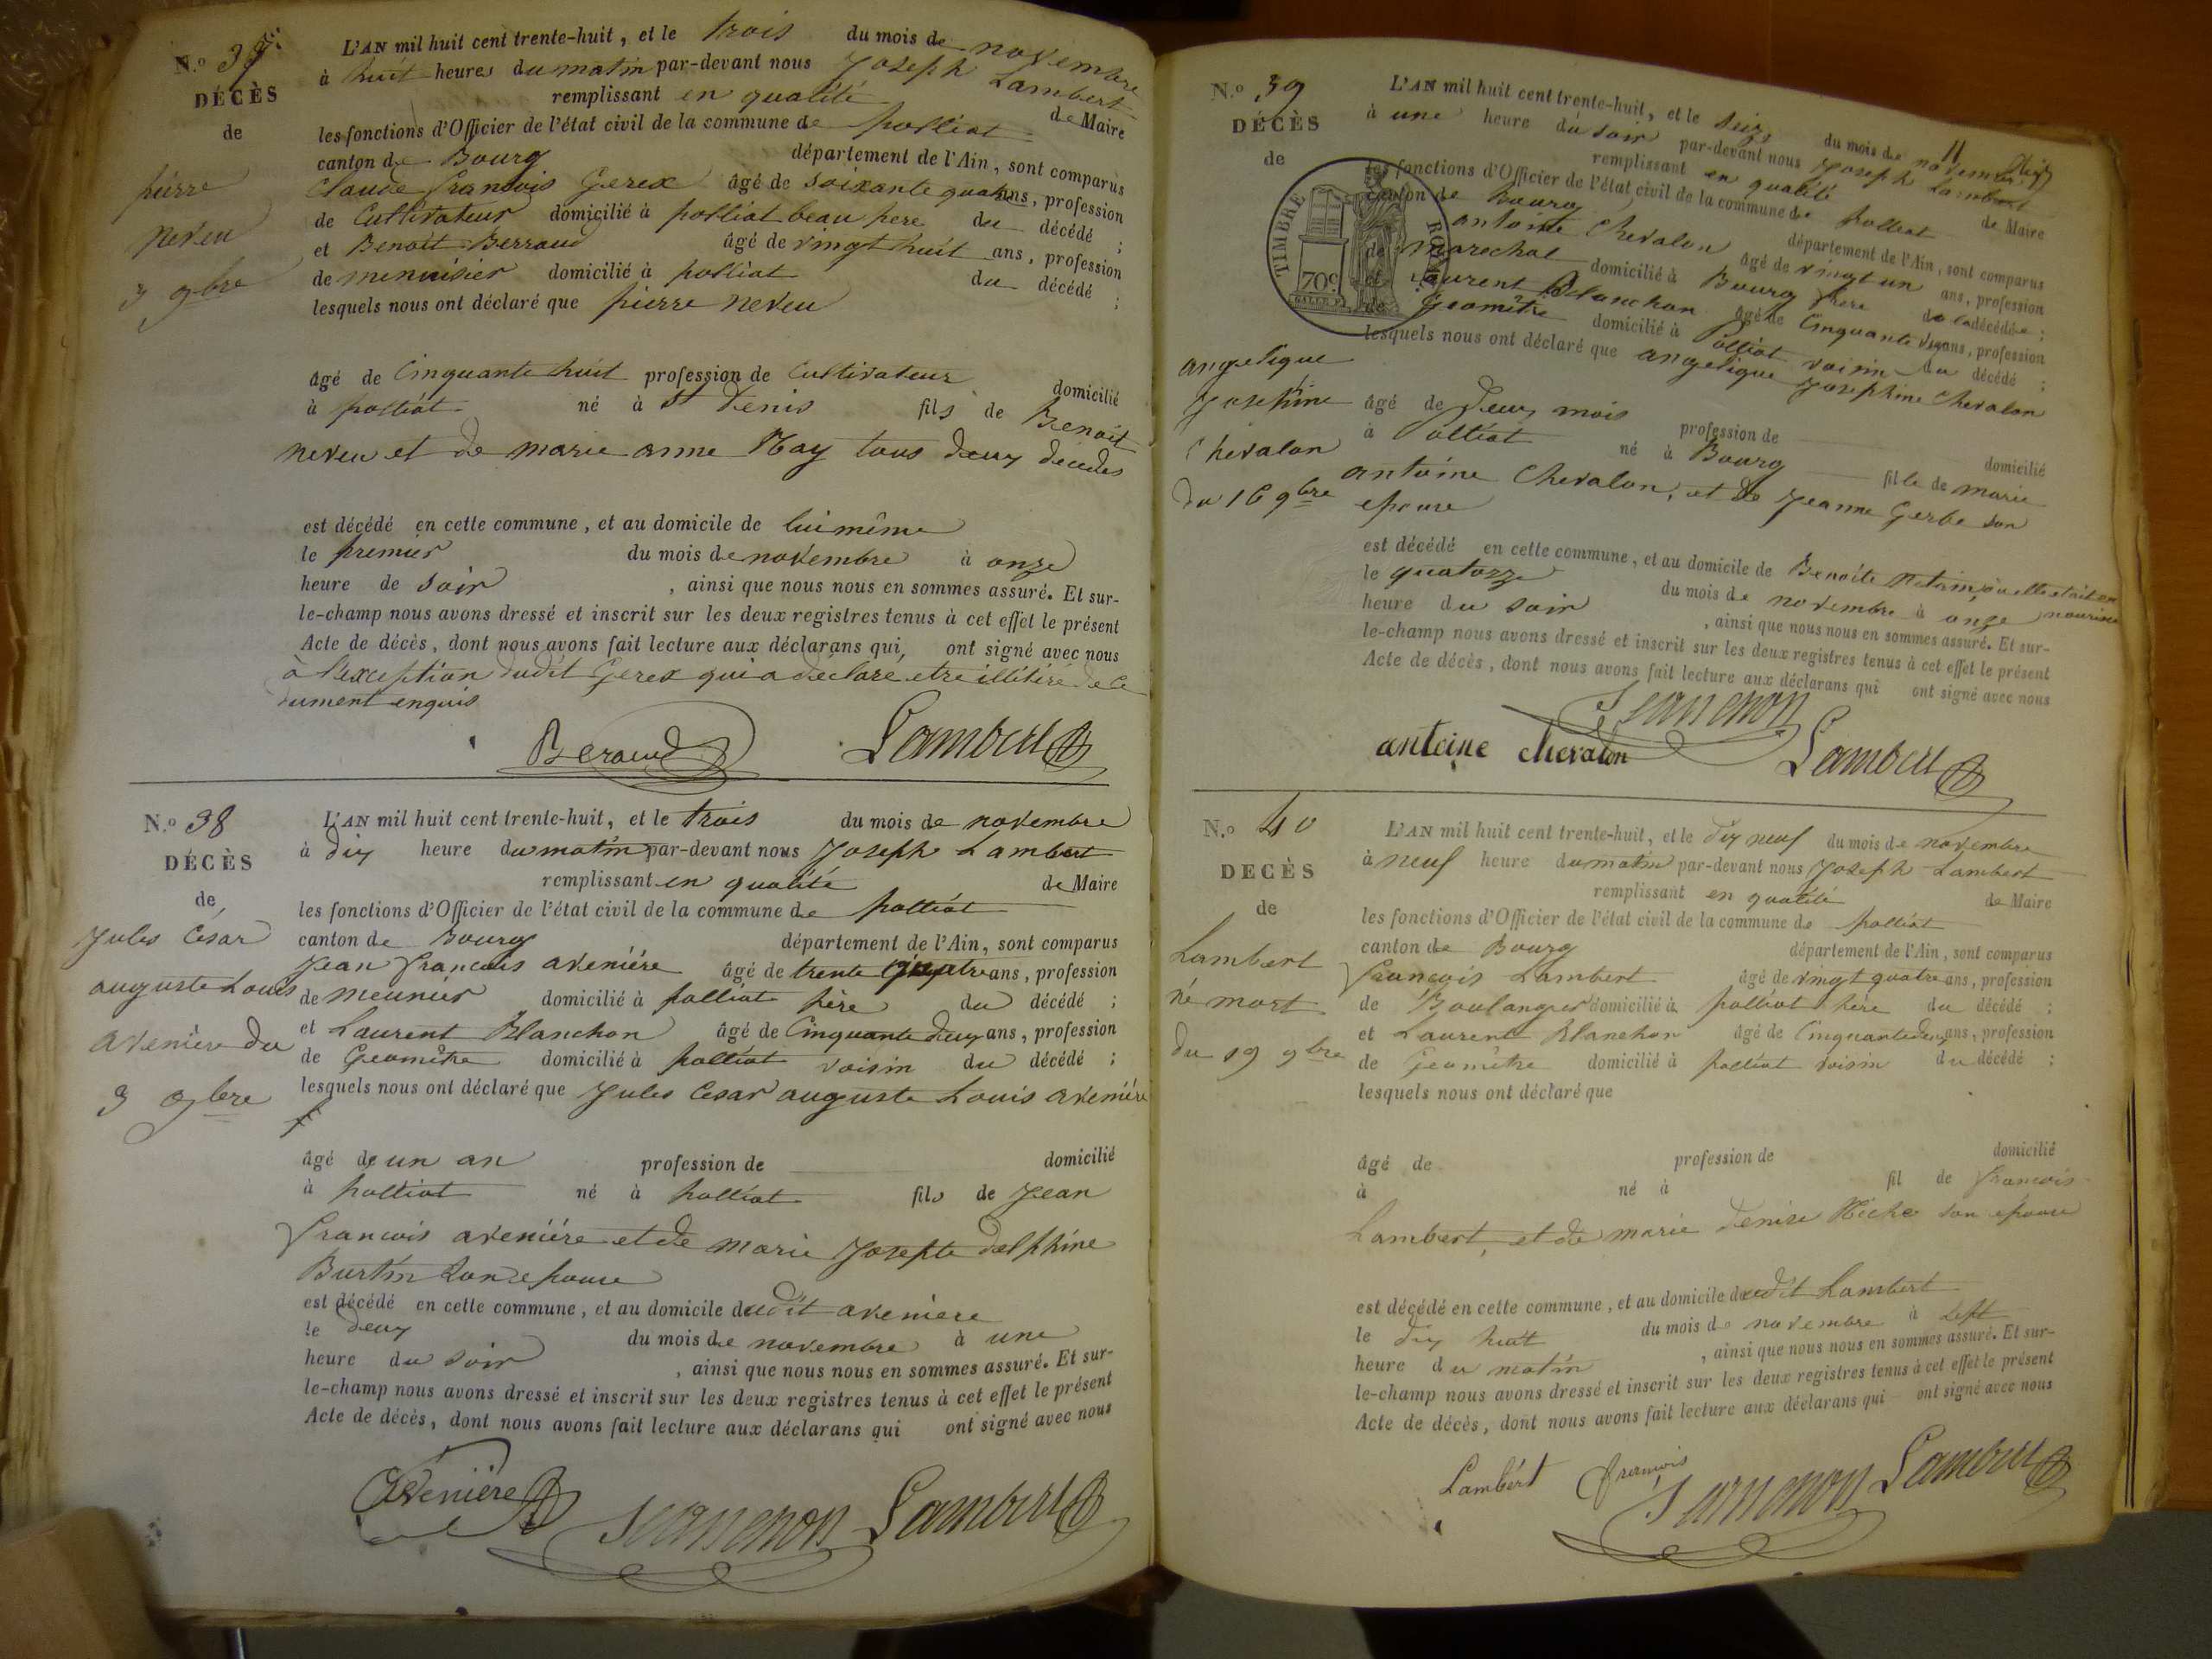 N.o 37.
DÉCÈS
de
pierre
neveu
3 9bre
L'AN mil huit cent trente-huit, et le trois du mois de novembre
à huit heures du matin par-devant nous Joseph Lambert
remplissant en qualité de Maire
les fonctions d'Officier de l'état civil de la commune de polliat
canton de Bourg département de l'Ain, sont comparus
Claude françois Gerex âgé de soixante quatre ans, profession
de Cultivateur domicilié à polliat beau pere du décédé ;
et Benoit Berraud âgé de vingt huit ans, profession
de menuisier domicilié à polliat du décédé ;
lesquels nous ont déclaré que pierre neveu
âgé de Cinquante huit profession de Cultivateur domicilié
à polliat né à St Denis fils de Benoit
neveu et de marie anne May tous deux décédés
est décédé en cette commune, et au domicile de lui même
le premier du mois de novembre à onze
heure de soir , ainsi que nous nous en sommes assuré. Et sur-
le-champ nous avons dressé et inscrit sur les deux registres tenus à cet effet le présent
Acte de décès, dont nous avons fait lecture aux déclarans qui, ont signé avec nous
à l'exception dudit Gerex qui a déclaré etre illitiré de ce
dument enquis
Beraud Lambert
N.o 38
DÉCÈS
de
Jules César
auguste Louis
avenière du
3 9bre
L'AN mil huit cent trente-huit, et le trois du mois de novembre
à dix heure du matin par-devant nous Joseph Lambert
remplissant en qualité de Maire
les fonctions d'Officier de l'état civil de la commune de polliat
canton de Bourg département de l'Ain, sont comparus
Jean françois avenière âgé de trente quatre ans, profession
de meunier domicilié à polliat père du décédé ;
et Laurent Blanchon âgé de Cinquante deux ans, profession
de Géomètre domicilié à polliat voisin du décédé ;
lesquels nous ont déclaré que Jules César auguste Louis avenière
âgé de un an profession de domicilié
à polliat né à polliat fils de Jean
françois avenière et de marie Josepte delphine
Burtin son epouse
est décédé en cette commune, et au domicile dudit avenière
le deux du mois de novembre à une
heure du soir , ainsi que nous nous en sommes assuré. Et sur-
le-champ nous avons dressé et inscrit sur les deux registres tenus à cet effet le présent
Acte de décès, dont nous avons fait lecture aux déclarans qui ont signé avec nous
Avenière Lambert
N.o 39
DÉCÈS
de
TIMBRE ROYAL
70c
angelique
Josephine
Chevalon
du 16 9bre
11
L'AN mil huit cent trente-huit, et le seize du mois de novembre
à une heure du soir par-devant nous Joseph Lambert
remplissant en qualité de Maire
les fonctions d'Officier de l'état civil de la commune de polliat
canton de Bourg département de l'Ain, sont comparus
antoine Chevalon âgé de vingt un ans, profession
de marechal domicilié à Bourg de la décédée ;
et Laurent Blanchon âgé de Cinquante deux ans, profession
de Géomètre domicilié à Polliat voisin du décédé ;
lesquels nous ont déclaré que angelique Josephine Chevalon
âgé de deux mois profession de domicilié
à Polliat né à Bourg fille de marie
antoine Chevalon, et de Jeanne Gerbe son
epouse
est décédé en cette commune, et au domicile de Benoite où elle était en
le quatorze du mois de novembre à onze nourrice
heure du soir , ainsi que nous nous en sommes assuré. Et sur-
le-champ nous avons dressé et inscrit sur les deux registres tenus à cet effet le présent
Acte de décès, dont nous avons fait lecture aux déclarans qui ont signé avec nous
antoine chevalon Lambert
N.o 40
DECÈS
de
Lambert
né mort
du 19 9bre
L'AN mil huit cent trente-huit, et le dix neuf du mois de novembre
à neuf heure du matin par-devant nous Joseph Lambert
remplissant en qualité de Maire
les fonctions d'Officier de l'état civil de la commune de polliat
canton de Bourg département de l'Ain, sont comparus
françois Lambert âgé de vingt quatre ans, profession
de Boulanger domicilié à polliat père du décédé ;
et Laurent Blanchon âgé de Cinquante deux ans, profession
de Géomètre domicilié à polliat voisin du décédé ;
lesquels nous ont déclaré que
âgé de profession de domicilié
à né à fil de françois
Lambert, et de marie denise son epouse
est décédé en cette commune, et au domicile dudit Lambert
le dix huit du mois de novembre à sept
heure du matin , ainsi que nous nous en sommes assuré. Et sur-
le-champ nous avons dressé et inscrit sur les deux registres tenus à cet effet le présent
Acte de décès, dont nous avons fait lecture aux déclarans qui ont signé avec nous
Lambért françois Lambert